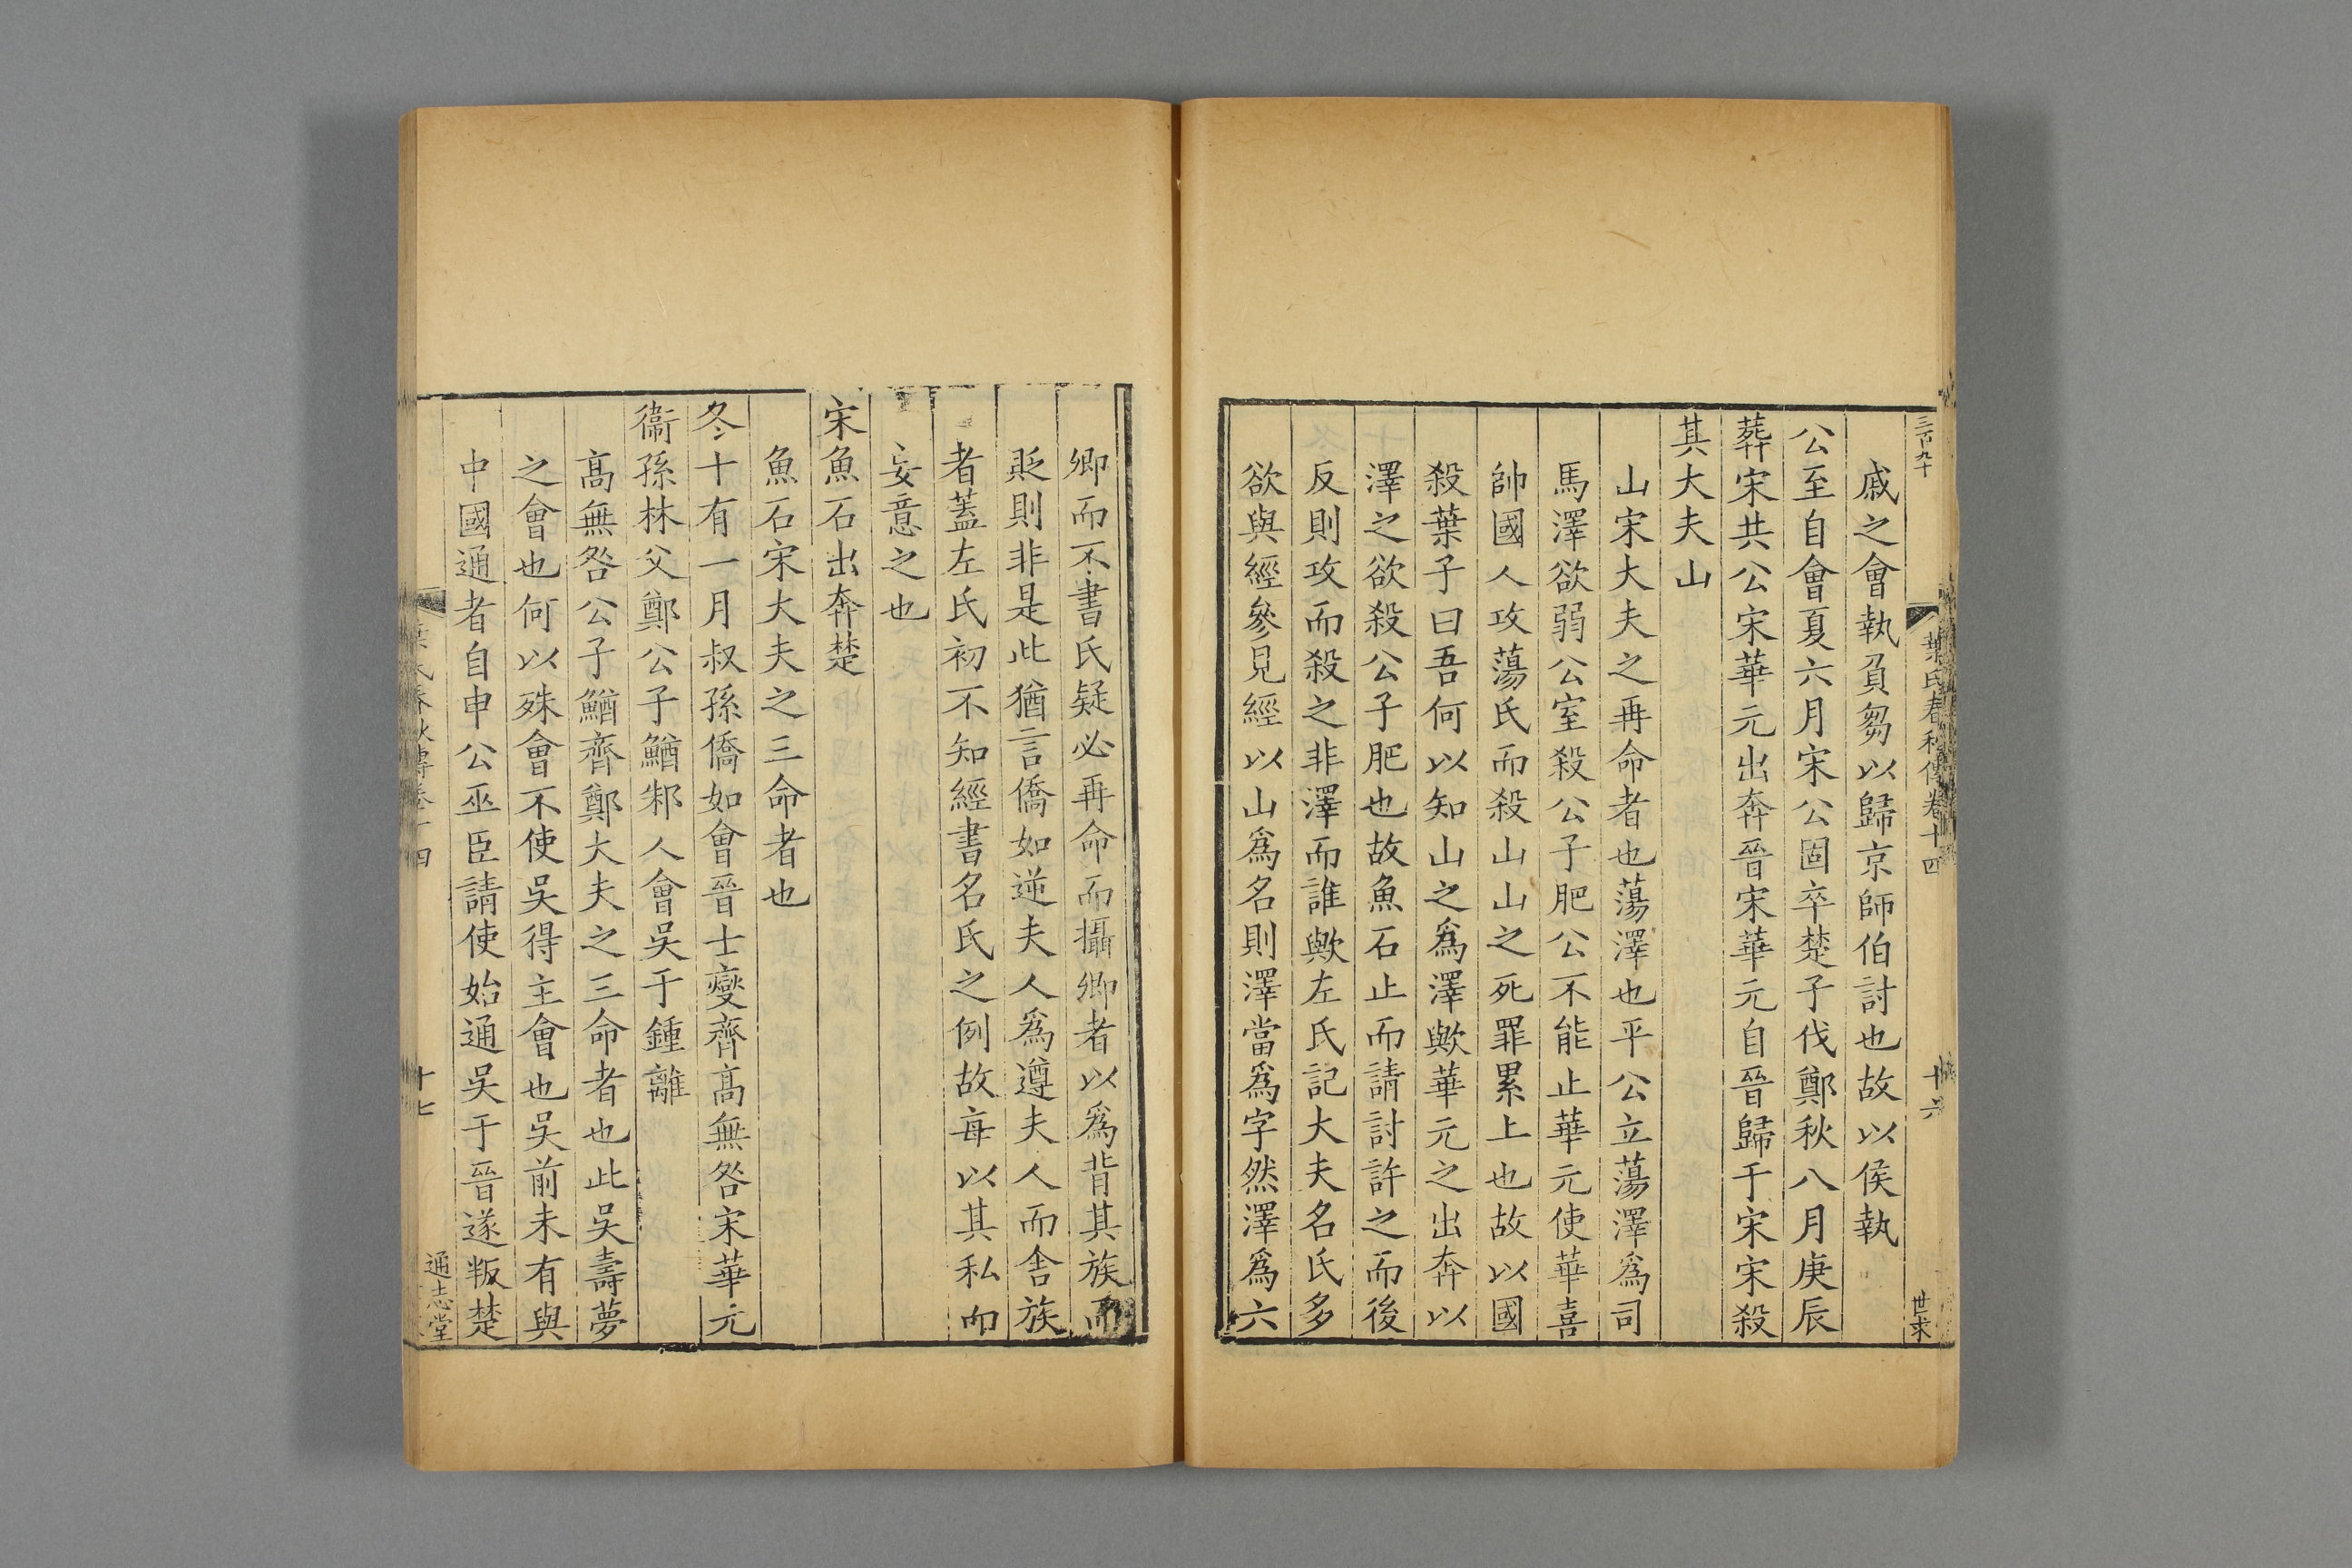 三百九十
葉氏春秋傳卷十四
十六
世求
戚之會執負芻以歸京師伯討也故以侯執
公至自會夏六月宋公固卒楚子伐鄭秋八月庚辰
葬宋共公宋華元出奔晉宋華元自晉歸于宋宋殺
其大夫山
山宋大夫之再命者也蕩澤也平公立蕩澤爲司
馬澤欲弱公室殺公子肥公不能止華元使華喜
帥國人攻蕩氏而殺山山之死罪累上也故以國
殺葉子曰吾何以知山之爲澤歟華元之出奔以
澤之欲殺公子肥也故魚石止而請討許之而後
反則攻而殺之非澤而誰歟左氏記大夫名氏多
欲與經參見經以山爲名則澤當爲字然澤爲六
卿而不書氏疑必再命而攝卿者以爲背其族而
貶則非是此猶言僑如逆夫人爲遵夫人而舍族
者蓋左氏初不知經書名氏之例故每以其私而
妄意之也
宋魚石出奔楚
魚石宋大夫之三命者也
冬十有一月叔孫僑如會晉士燮齊髙無咎宋華元
衞孫林父鄭公子鰌邾人會吳于鍾離
髙無咎公子鰌齊鄭大夫之三命者也此吳壽夢
之會也何以殊會不使吳得主會也吳前未有與
中國通者自申公巫臣請使始通吳于晉遂叛楚
氏春秋傳卷十四
十七
通志堂